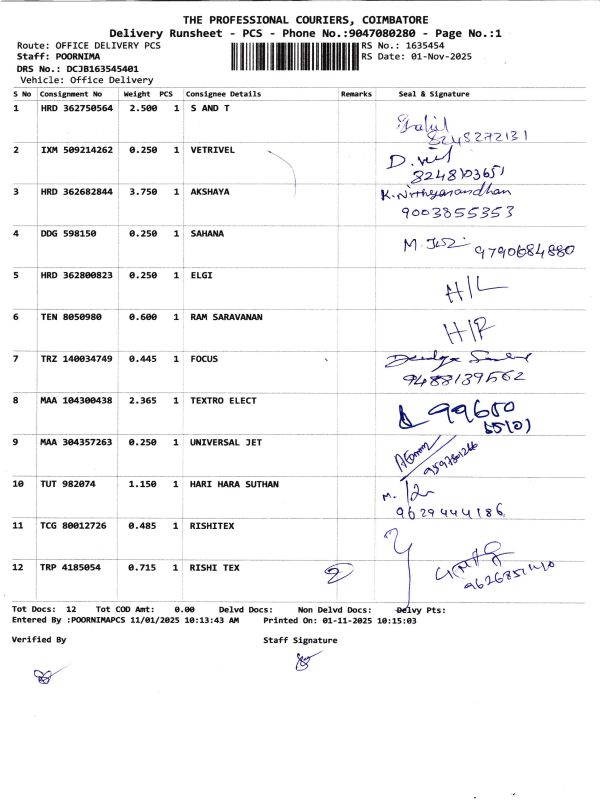 THE PROFESSIONAL COURIERS, COIMBATORE
Delivery Runsheet - PCS - Phone No.:9047080280 - Page No.:1
Route: OFFICE DELIVERY PCS
Staff: POORNIMA
DRS No.: DCJB163545401
Vehicle: Office Delivery
RS No.: 1635454
RS Date: 01-Nov-2025
S No Consignment No Weight PCS Consignee Details Remarks Seal & Signature
1 HRD 362750564 2.500 1 S AND T
8248272131
2 IXM 509214262 0.250 1 VETRIVEL
8248103651
3 HRD 362682844 3.750 1 AKSHAYA K. Nithyanandhan
9003855353
4 DDG 598150 0.250 1 SAHANA 9790684880
5 HRD 362800823 0.250 1 ELGI H/L
6 TEN 8050980 0.600 1 RAM SARAVANAN H/R
7 TRZ 140034749 0.445 1 FOCUS
9488139562
8 MAA 104300438 2.365 1 TEXTRO ELECT 99650
9 MAA 304357263 0.250 1 UNIVERSAL JET
10 TUT 982074 1.150 1 HARI HARA SUTHAN M.
9629444186
11 TCG 80012726 0.485 1 RISHITEX
12 TRP 4185054 0.715 1 RISHI TEX 2
Tot Docs: 12 Tot COD Amt: 0.00 Delvd Docs: Non Delvd Docs: Delvy Pts:
Entered By :POORNIMAPCS 11/01/2025 10:13:43 AM Printed On: 01-11-2025 10:15:03
Verified By Staff Signature